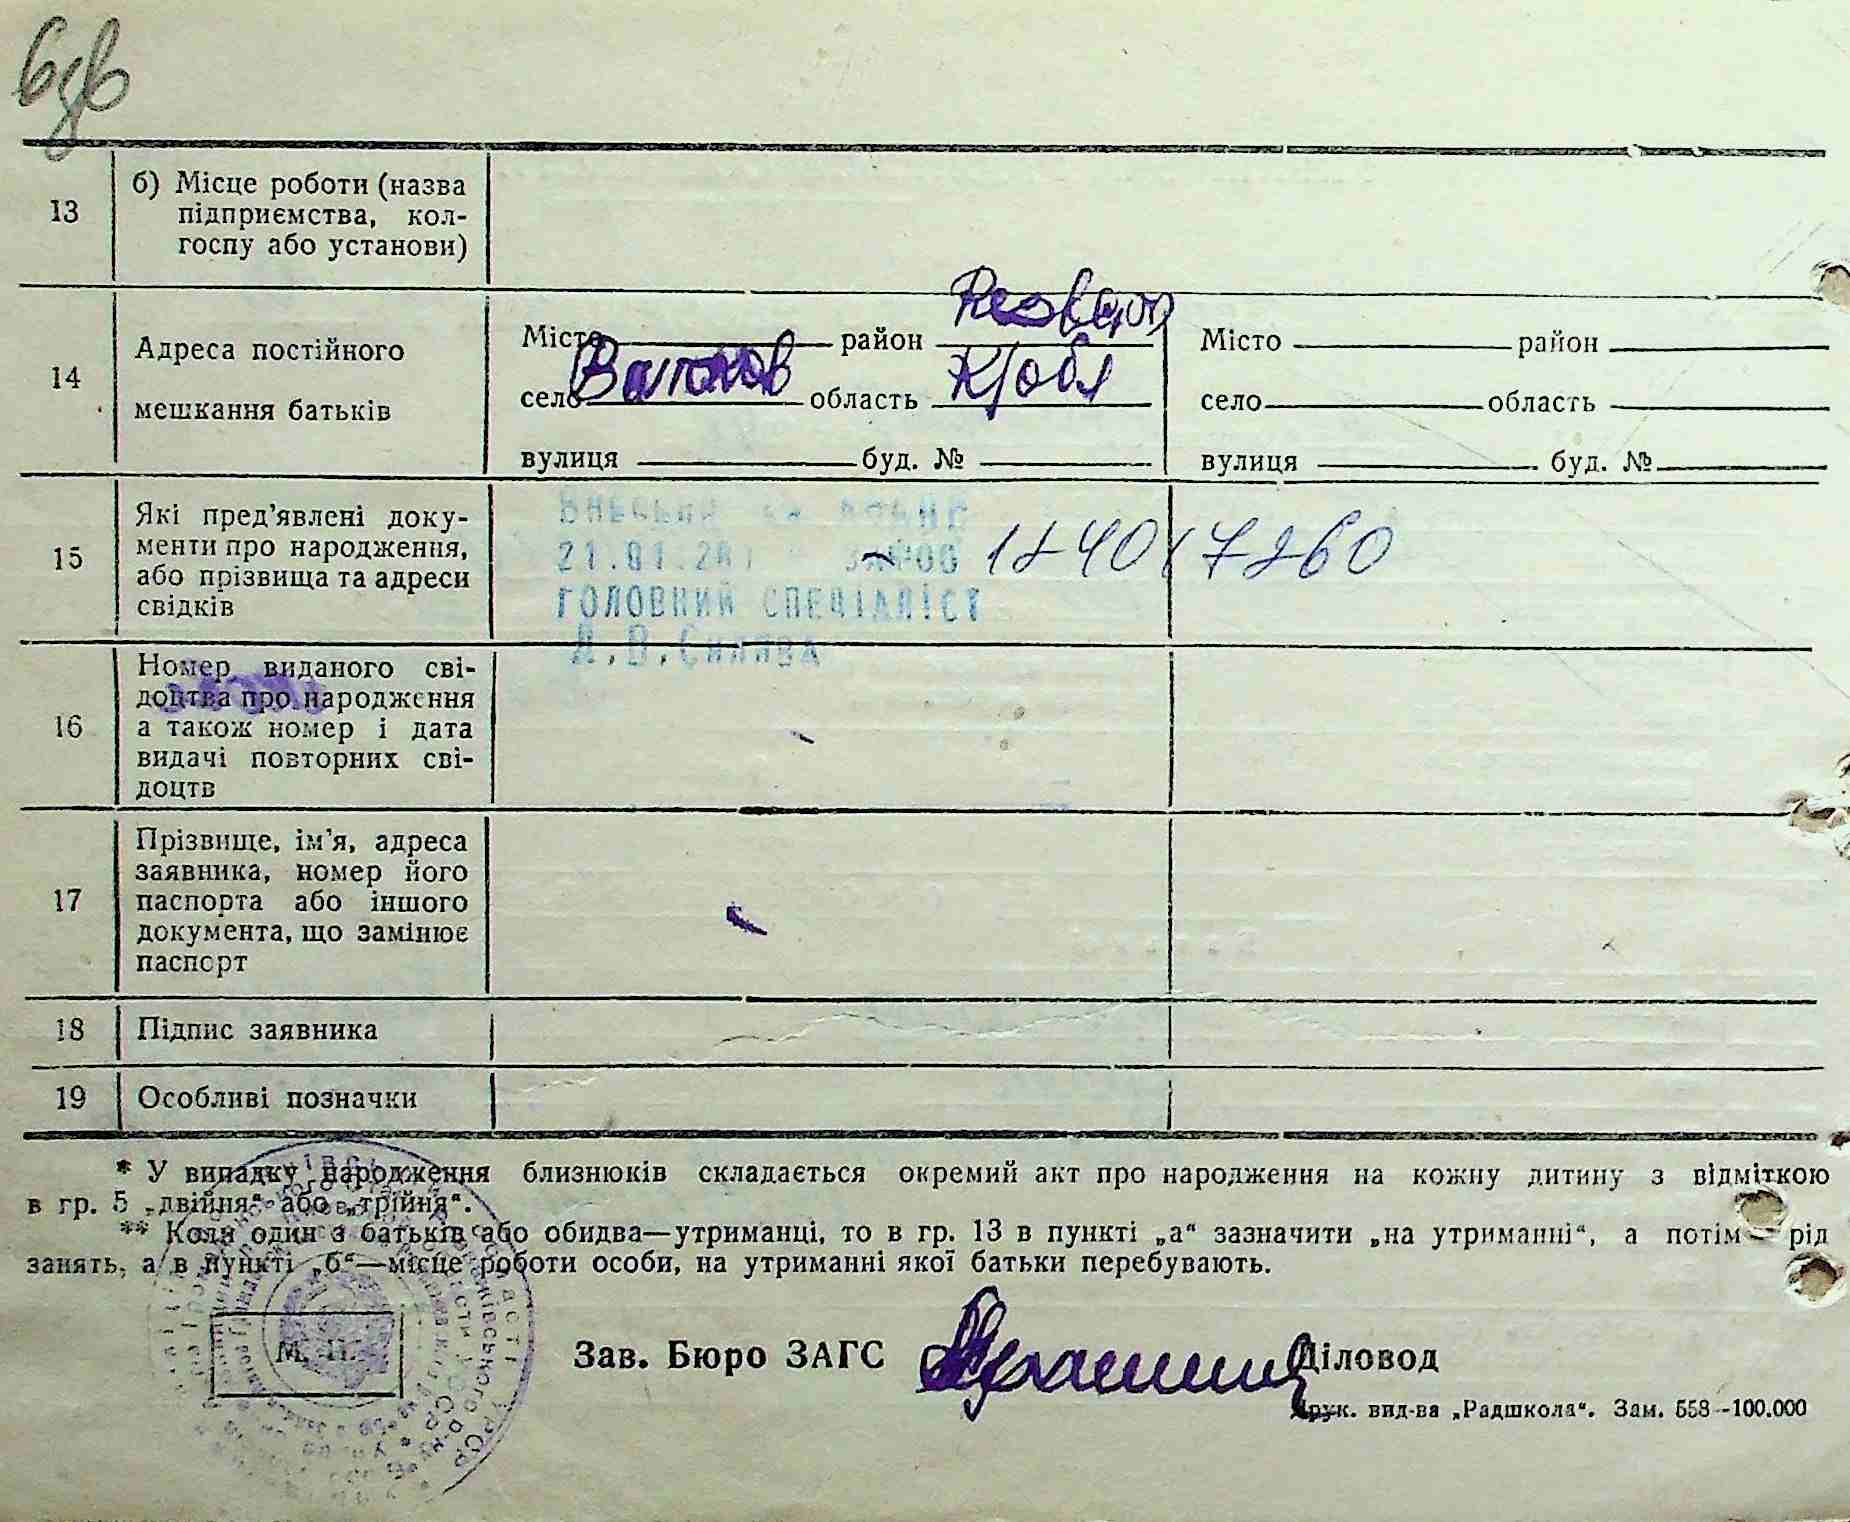 13
б) Місце роботи (назва
підприємства, кол-
госпу або установи)
14
Адреса постійного
мешкання батьків
Місто район
село область К/обл
вулиця буд. №
Місто район
село область
вулиця буд. №
15
Які пред’явлені доку-
менти про народження,
або прізвища та адреси
свідків
21.01.20
ГОЛОВНИЙ СПЕЦІАЛІСТ
16
Номер виданого сві-
доцтва про народження
а також номер і дата
видачі повторних сві-
доцтв
17
Прізвище, ім’я, адреса
заявника, номер його
паспорта або іншого
документа, що замінює
паспорт
18
Підпис заявника
19
Особливі позначки
* У випадку народження близнюків складається окремий акт про народження на кожну дитину з відміткою
в гр. 5 „двійня“ або „трійня“.
** Коли один з батьків або обидва—утриманці, то в гр. 13 в пункті „а“ зазначити „на утриманні“, а потім рід
занять, а в пункті „б“—місце роботи особи, на утриманні якої батьки перебувають.
М. П.
Зав. Бюро ЗАГС Діловод
Друк. вид-ва „Радшкола“. Зам. 558-100.000